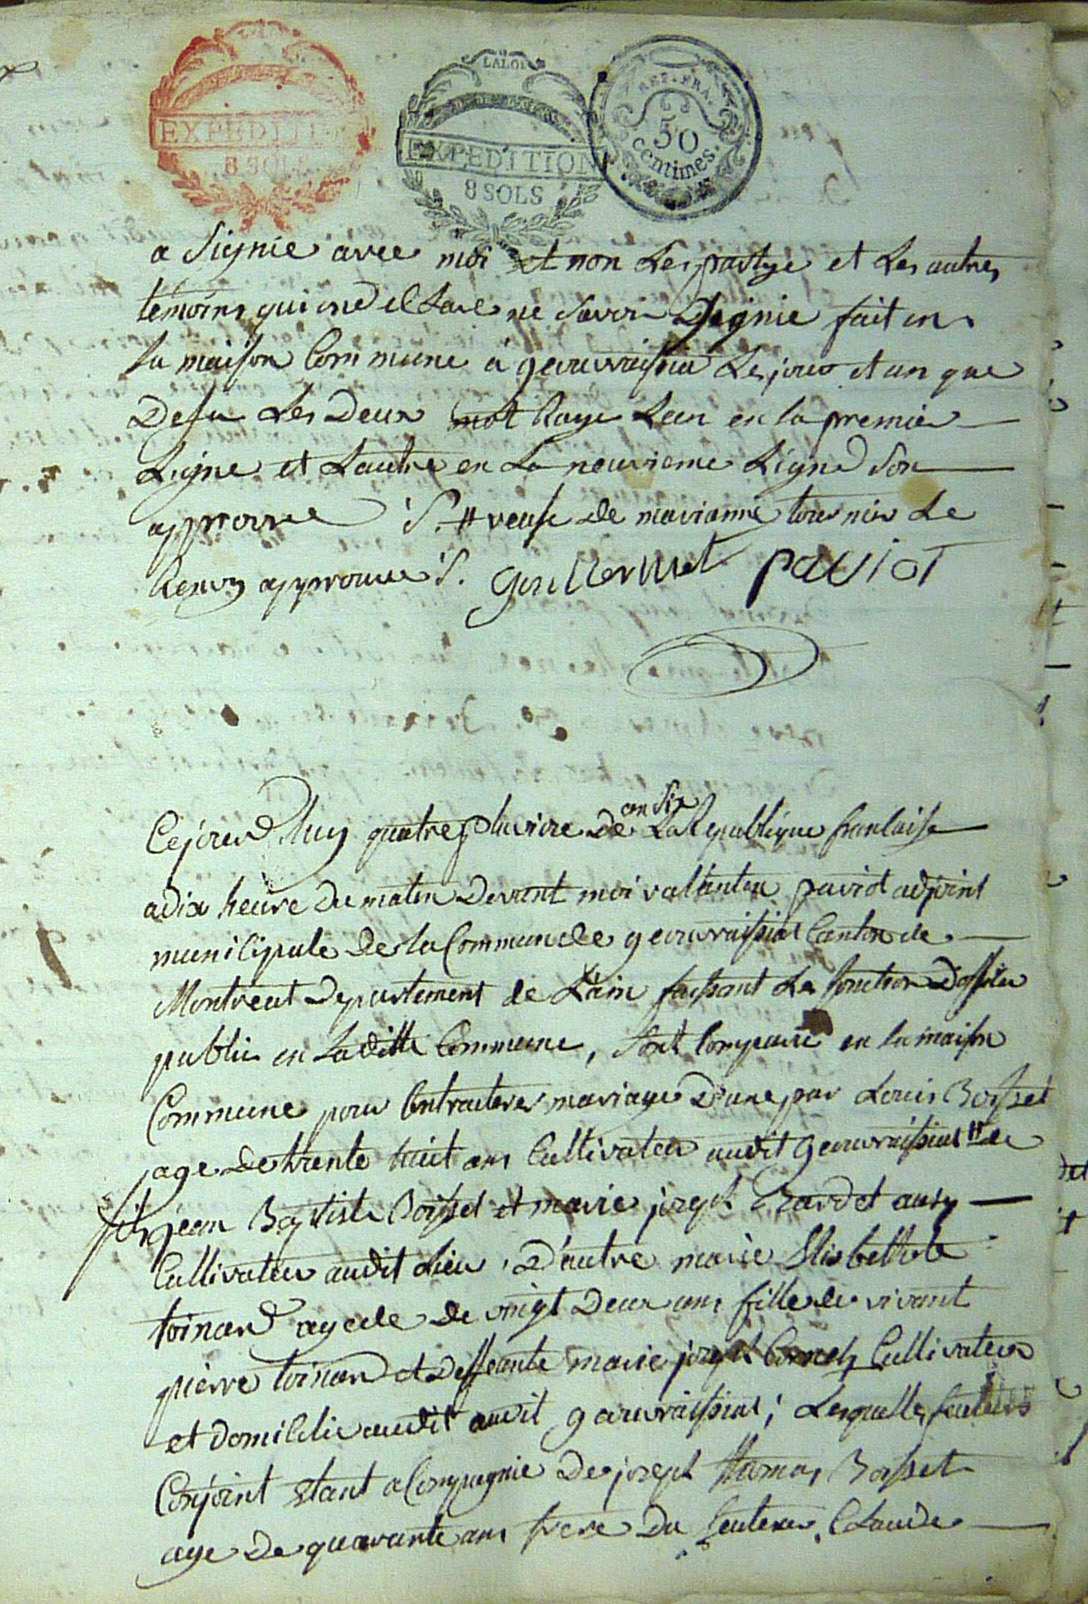 EXPEDITION
8 SOLS
LA LOI
EXPEDITION
8 SOLS
REP. FRA.
50
centimes.
a Signie avec moi et non Les partye et Les autres
temoins qui on declare ne savoir Signie fait en
La maison Commune a geauvraissia Les jour et an que
Desu Les Deux mot Raye Lun en la premie
Ligne et Lautre en La neuvieme Ligne Son
approuve S. # veufe de marianne tournier Le
Renvoy approuve S. Guillermet paviot
Cejourd huy quatre pluviose de an Six La Republique franlaise
a dix heure du maten Devant moi vallentin paviot adjoint
munilipale de la Commune de geauvraissiat Canton de
Montreat Departement de L'ain faissant Les fonction D'offiler
public en Laditte Commune, sont Comparu en la maison
Commune pour Contracter mariage D'une par Louis Boisset
age de trente huit ans Cultivateur audit geauvraissiat # de
fils jean Baptiste Boisset et marie joseph Bardet ausy
Cultivateur audit Lieu, D'autre marie Elisbethe
toinard agee de vingt Deux ans fille de vivant
pierre toinard et Deffeunte marie joseph Cornely Cultivateur
et domicilie audit audit geauvraissiat; Lesquelle futeurs
Conjoint etant a Compagnie De joseph thomas Boisset
age De quarante ans frere Du feuteur, Claude